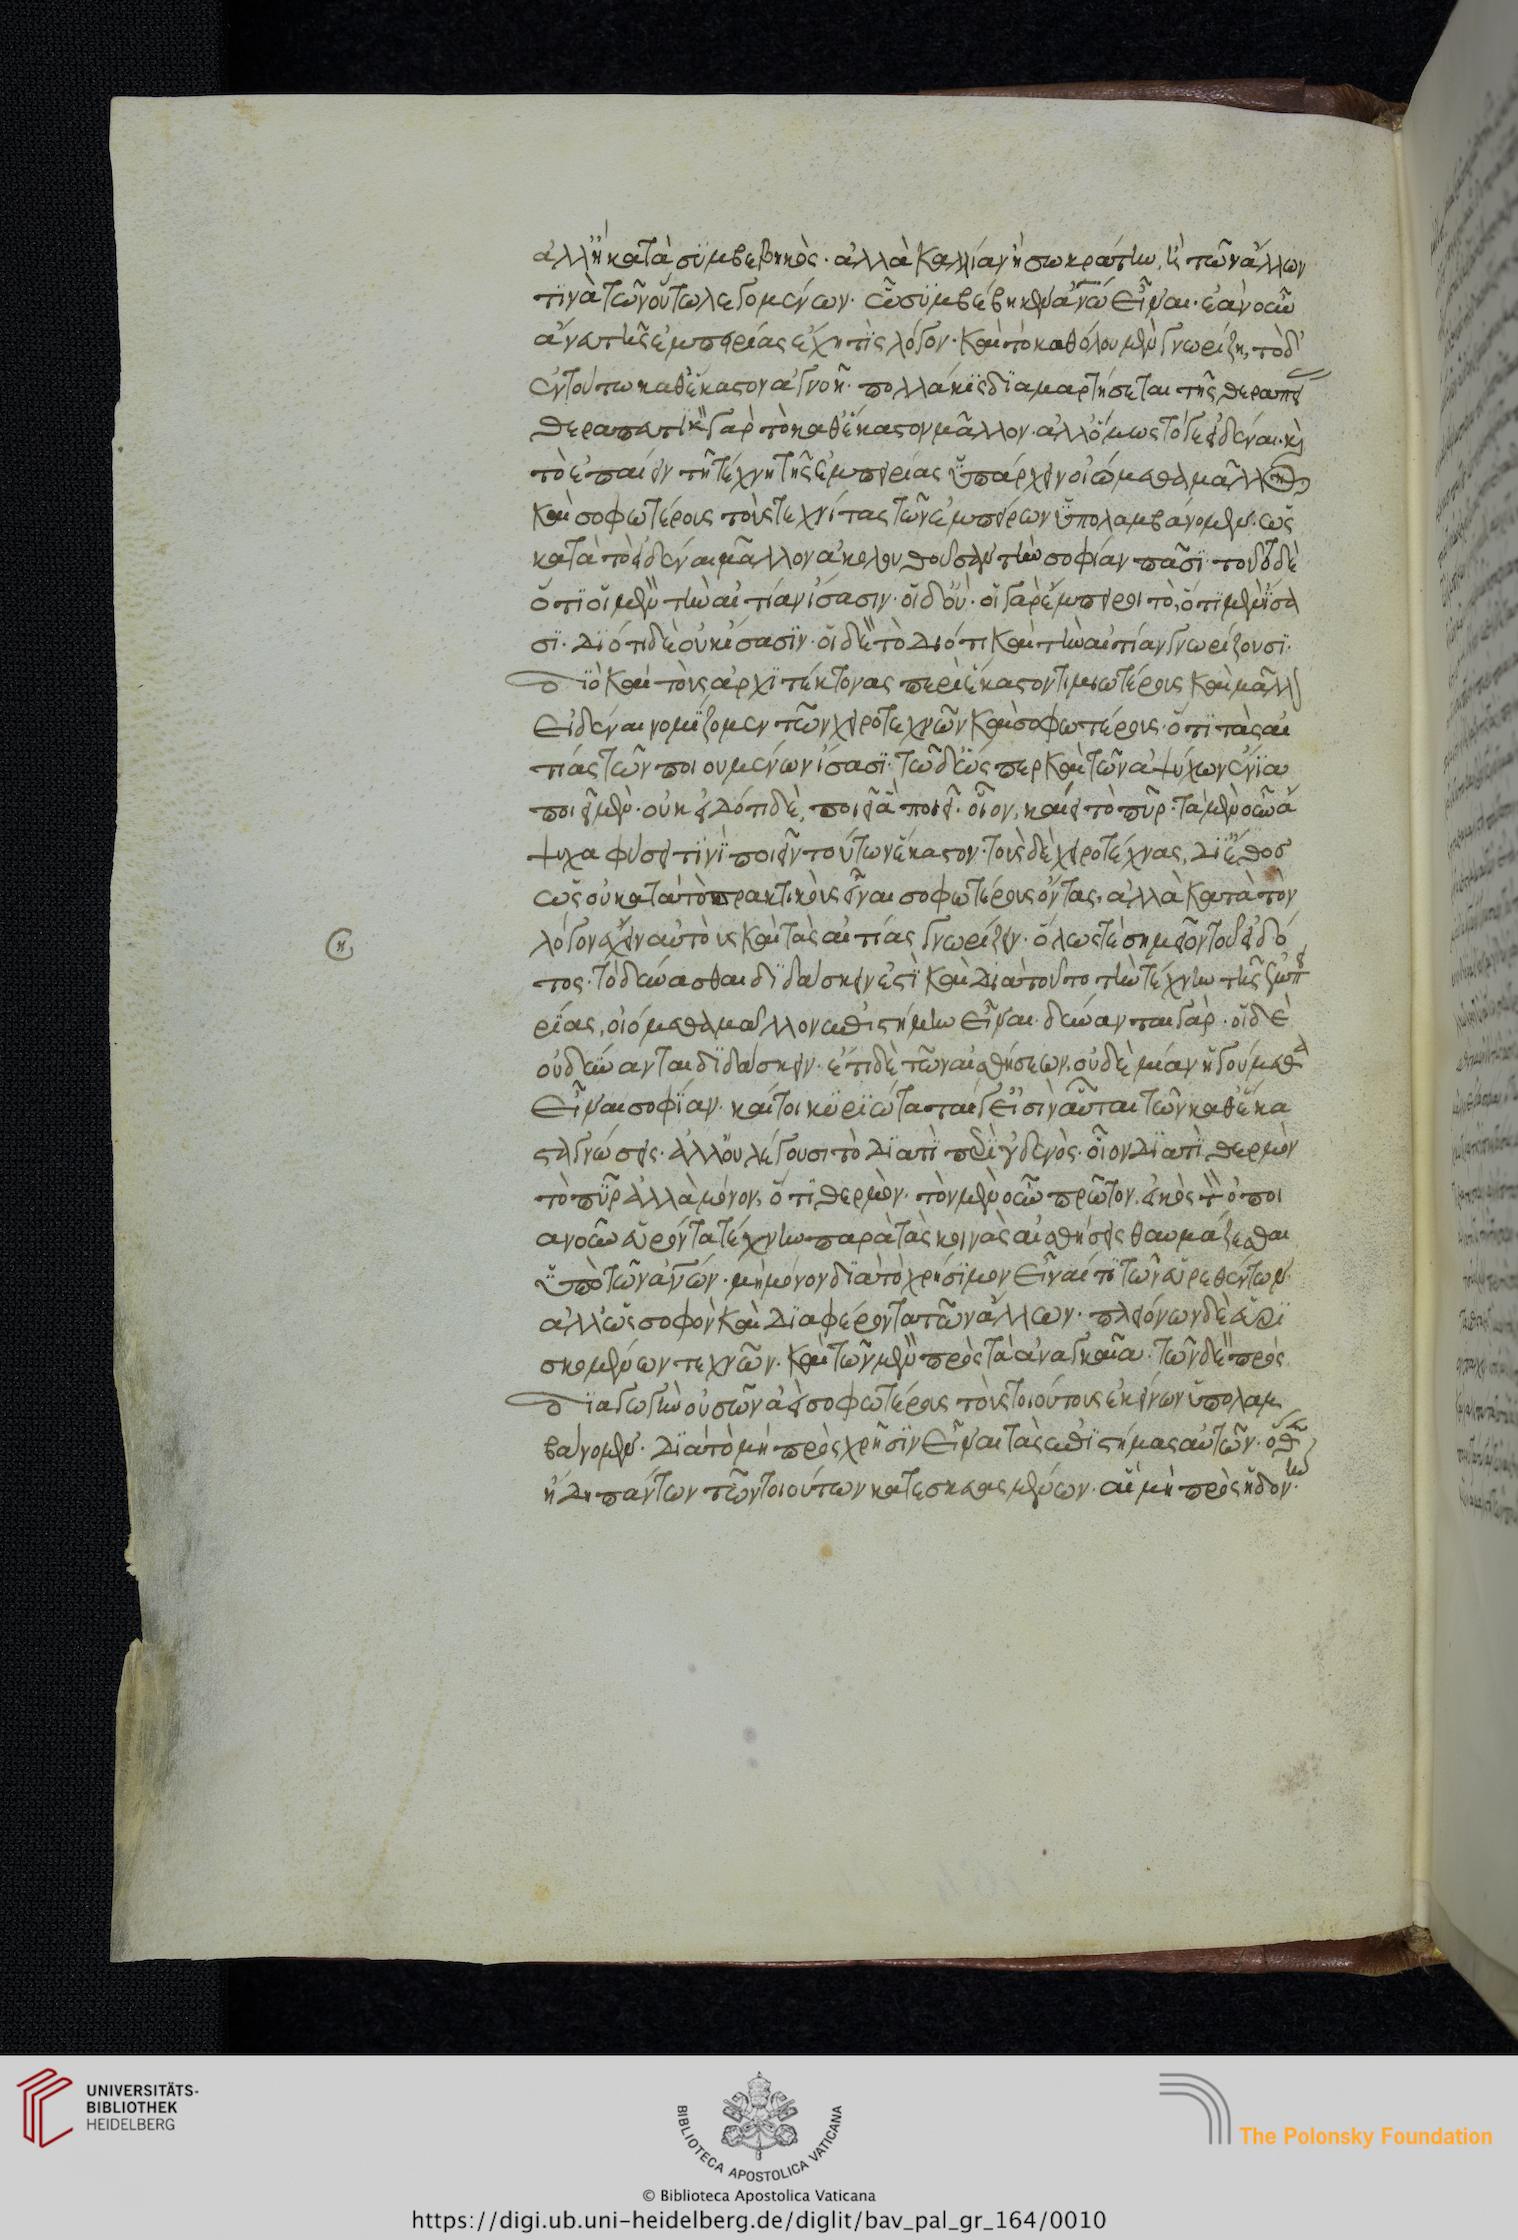 ἀλλ' ἢ κατὰ συμβεβηκός· ἀλλὰ Καλλίαν ἢ Σωκράτην, ἢ τῶν ἄλλων
τινὰ τῶν οὕτω λεγομένων· ᾧ συμβέβηκεν ἀνῳ εἶναι· ἐὰν οὖν
ἄνευ τῆς ἐμπειρίας ἔχῃ τις λόγον· καὶ τὸ καθόλου μὲν γνωρίζῃ, τὸ δ'
ἐν τούτῳ καθ' ἕκαστον ἀγνοῇ· πολλάκις διαμαρτήσεται τῆς θεραπεί
θεραπευτικ γὰρ τὸ καθ' ἕκαστον μᾶλλον· ἀλλ' ὅμως τό γε εἰδέναι καὶ
τὸ ἐπαίειν τῇ τέχνῃ τῆς ἐμπειρίας ὑπάρχειν οἰόμεθα μᾶλλον
καὶ σοφωτέρους τοὺς τεχνίτας τῶν ἐμπείρων ὑπολαμβάνομεν· ὡς
κατὰ τὸ εἰδέναι μᾶλλον ἀκολουθοῦσαν τὴν σοφίαν πᾶσι· τοῦτο δὲ
ὅτι οἱ μὲν τὴν αἰτίαν ἴσασιν· οἱ δ' οὔ· οἱ γὰρ ἔμπειροι τὸ, ὅτι μὲν ἴσα
σι· διότι δὲ οὐκ ἴσασιν· οἱ δὲ τὸ διότι καὶ τὴν αἰτίαν γνωρίζουσι·
διὸ καὶ τοὺς ἀρχιτέκτονας περὶ ἕκαστον τιμιωτέρους καὶ μᾶλλ
εἰδέναι νομίζομεν τῶν χειροτεχνῶν καὶ σοφωτέρους· ὅτι τὰς αἰ
τίας τῶν ποιουμένων ἴσασι· τῶν δ' ὥσπερ καὶ τῶν ἀψύχων ἔνια
ποιεῖ μὲν· οὐκ εἰδότι δὲ, ποιεῖ ἃ ποιεῖ· οἷον, καίει τὸ πῦρ· τὰ μὲν οὖν ἄ
ψυχα φύσει τινὶ ποιεῖν τούτων ἕκαστον· τοὺς δὲ χειροτέχνας, δι' ἔθος
ὡς οὐ κατὰ τὸ πρακτικοὺς εἶναι σοφωτέρους ὄντας, ἀλλὰ κατὰ τὸν
λόγον ἔχειν αὐτοὺς καὶ τὰς αἰτίας γνωρίζειν· ὅλως τὲ σημεῖον τοῦ εἰδό
τος· τὸ δύνασθαι διδάσκειν ἐστὶ καὶ διὰ τοῦτο τὴν τέχνην τῆς ἐμπει
ρίας, οἰόμεθα μᾶλλον ἐπιστήμην εἶναι· δύνανται γάρ· οἱ δὲ
οὐ δύνανται διδάσκειν· ἔτι δὲ τῶν αἰσθήσεων, οὐδεμίαν ἡγούμεθα
εἶναι σοφίαν· καίτοι κυριώταταί γ' εἰσὶν αὗται τῶν καθ' ἕκα
στα γνώσεις· ἀλλ' οὐ λέγουσι τὸ διατί περὶ οὐδενός· οἷον διατί θερμὸν
τὸ πῦρ ἀλλὰ μόνον, ὅτι θερμόν· τὸν μὲν οὖν πρῶτον, εἰκὸς τὸν ὁποι
ανοῦν εὑρόντα τέχνην παρὰ τὰς κοινὰς αἰσθήσεις θαυμάζεσθαι
ὑπὸ τῶν ἀνων· μὴ μόνον διὰ τὸ χρήσιμον εἶναί τι τῶν εὑρεθέντων
ἀλλ' ὡς σοφὸν καὶ διαφέροντα τῶν ἄλλων· πλειόνων δὲ εὑρι
σκομένων τεχνῶν· καὶ τῶν μὲν πρὸς τὰ ἀναγκαῖα· τῶν δὲ πρὸς
διαγωγὴν οὐσῶν ἀεὶ σοφωτέρους τοὺς τοιούτους ἐκείνων ὑπολαμ
βάνομεν· διὰ τὸ μὴ πρὸς χρῆσιν εἶναι τὰς ἐπιστήμας αὐτῶν· ὅθεν
ἤδη πάντων τῶν τοιούτων κατεσκευασμένων· αἱ μὴ πρὸς ἡδονὴν
η
UNIVERSITÄTS-
BIBLIOTHEK
HEIDELBERG
BIBLIOTECA APOSTOLICA VATICANA
The Polonsky Foundation
© Biblioteca Apostolica Vaticana
https://digi.ub.uni-heidelberg.de/diglit/bav_pal_gr_164/0010